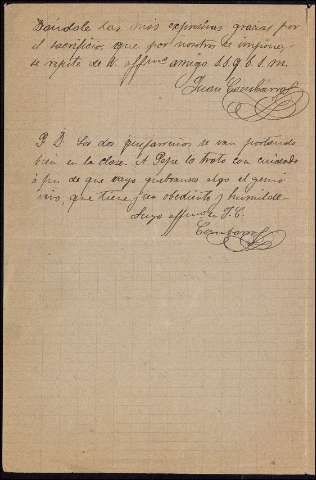 Dándole las más expresivas gracias por
el sacrificio que por nosotros se impone,
se repite de V. affmo amigo s.s.q.b.s.m.
Juan
P. D. Los dos se van portando
bien en la clase. A Pepe lo trato con cuidado
a fin de que vaya quebrando algo el genio
vivo, que tiene y sea obediente y humilde.
Suyo affmo en J. C.